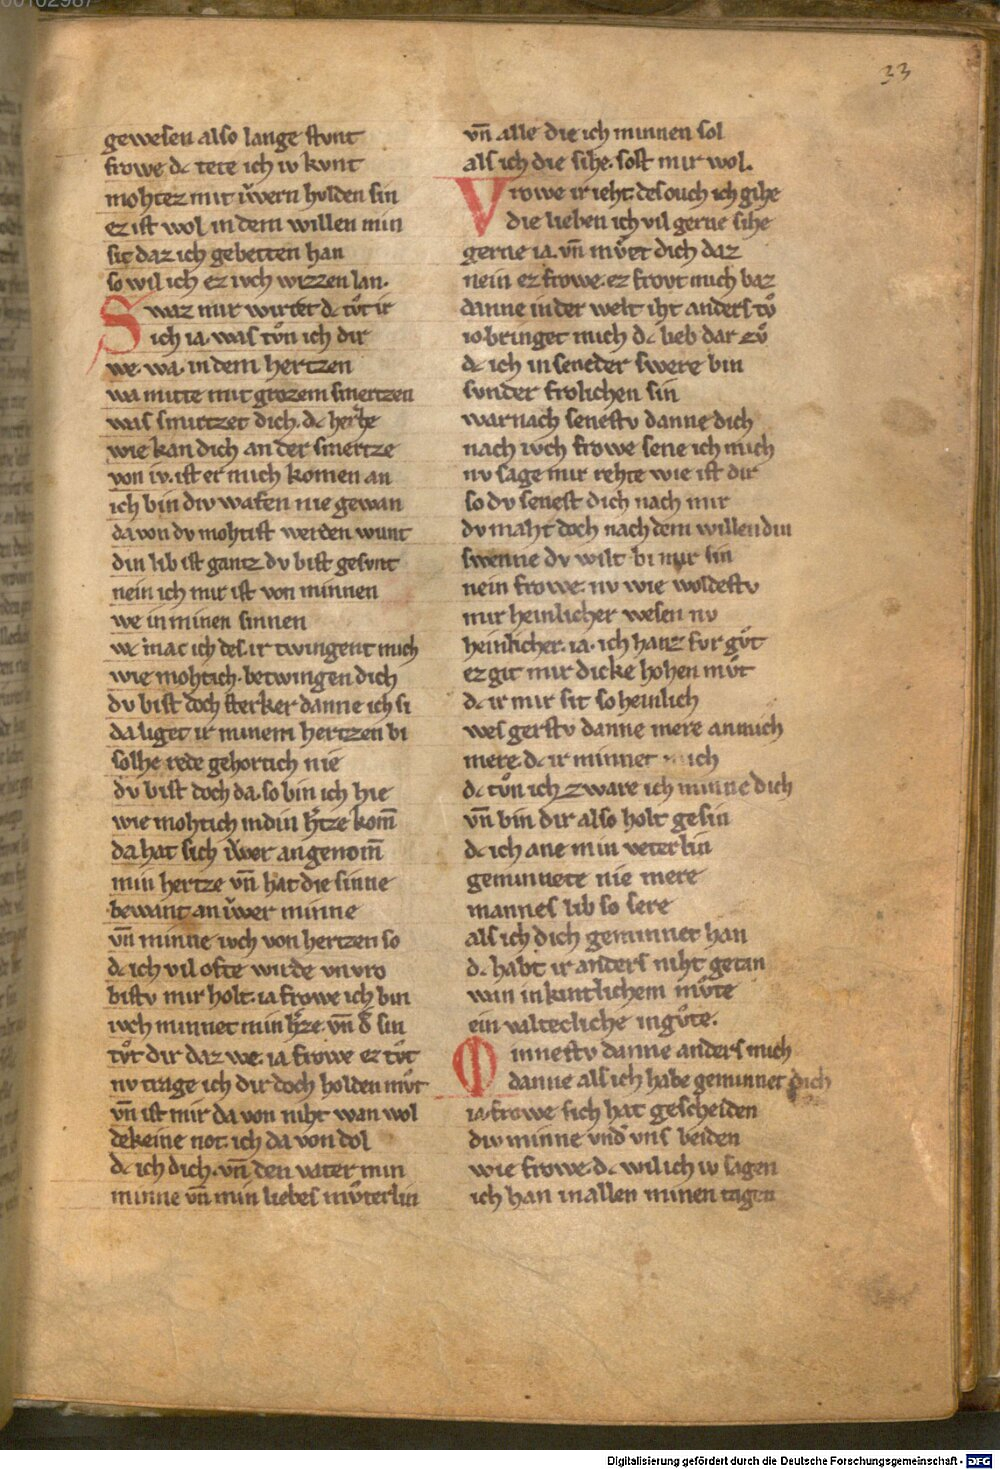 33
gewesen also lange stvnt
frowe dc tete ich iv kvnt
mohtez mit ivͮern hvlden sin
ez ist wol in dem willen min
sit daz ich gebetten han
so wil ich ez ivch wizzen lan.
Swaz mir wirret dc tvͦt ir
ich ia. was tvͦn ich dir
we. wa. in dem hertzen
wa mitte mit grozem smertzen
was smirtzet dich. dc hertze
wie kan dich an der smertze
von iv. ist er mich komen an
ich bin div wafen nie gewan
da von dv mohtist werden wunt
din lib ist gantz dv bist gesvnt
nein ich mir ist von minnen
we in minen sinnen
mac ich des. ir twingent mich
wie mohtich. betwingen dich
dv bist doch sterker danne ich si
da liget ir minem hertzen bi
solhe rede gehortich nie
dv bist doch da. so bin ich hie
wie mohtich in din h̾tze kom̄
da hat sich ivͮwer angenom̄
min hertze vn̄ hat die sinne
bewant an ivͮwer minne
vn̄ minne ivch von hertzen so
dc ich vil ofte wirde vnvro
bistv mir holt. ia frowe ich bin
ivch minnet min h̾ze. vn̄ d̾ sin
tvͦt dir daz we. ia frowe ez tvͦt
nv trage ich dir doch holden mvͦt
vn̄ ist mir da von niht wan wol
dekeine not. ich da von dol
dc ich dich. vn̄ den vater min
minne vn̄ min liebes mvͦterlin
vn̄ alle die ich minnen sol
als ich die sihe. sost mir wol.
Vrowe ir ieht. des ouch ich gihe
die lieben ich vil gerne sihe
gerne ia. vn̄ mvͤet dich daz
nein ez frowe. ez frovt mich baz
danne in der welt iht anders tvͦ
io bringet mich dc lieb dar zvͦ
dc ich in seneder swere bin
svnder frolichen sin
warnach senestv danne dich
nach ivch frowe sene ich mich
nv sage mir rehte wie ist dir
so dv senest dich nach mir
dv maht doch nach dem willen din
swenne dv wilt bi mir sin
nein frowe. nv wie woldestv
mir heinlicher wesen nv
heinlicher. ia. ich hanz fvr gvͦt
ez git mir dicke hohen mvͦt
dc ir mir sit so heinlich
wes gerstv danne mere an mich
mere. dc ir minnet mich
dc tvͦn ich zware ich minne dich
vn̄ bin dir also holt gesin
dc ich ane min veterlin
geminnete nie mere
mannes lib so sere
als ich dich geminnet han
d. habt ir anders niht getan
wan in kintlichem mvͦte
ein valtecliche in gvͦte.
Minnestv danne anders mich
danne als ich habe geminnet dich
ia. frowe sich hat gescheiden
div minne vnd̾ vns beiden
wie frowe. dc wil ich iv sagen
ich han in allen minen tagen
Digitalisierung gefördert durch die Deutsche Forschungsgemeinschaft - DFG